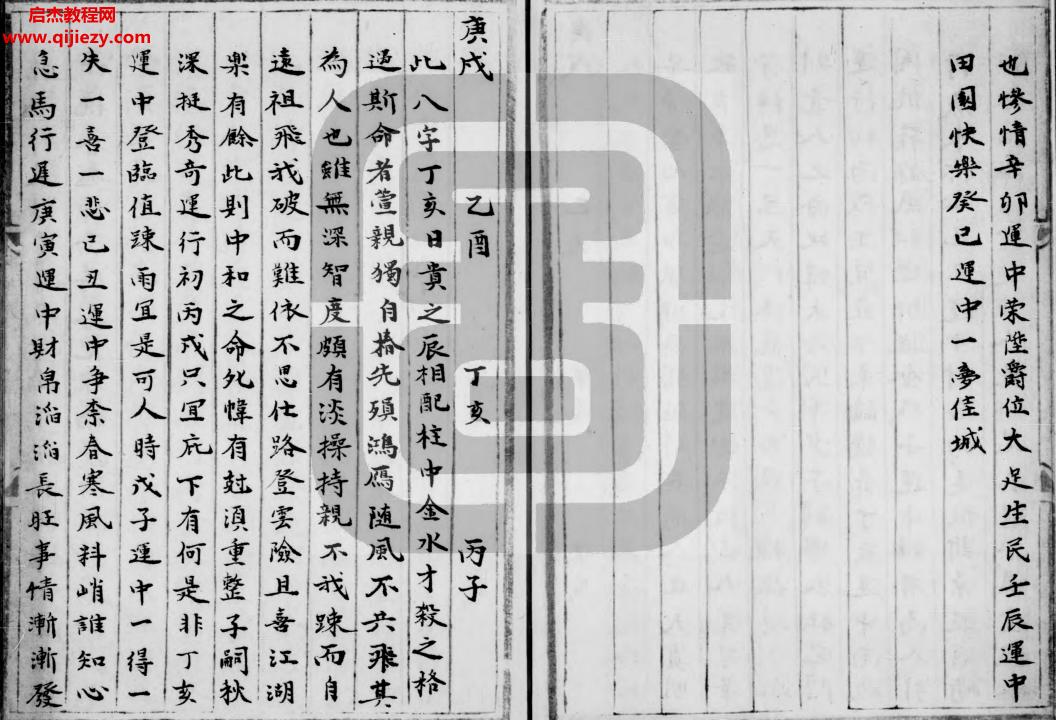 启杰教程网
www.qijiezy.com
也慘情辛卯運中荣陞爵位大足生民壬辰運中
田園快樂癸巳運中一夢佳城
庚戌 乙酉 丁亥 丙子
此八字丁亥日貴之辰相配柱中金水才殺之格
過斯命者萱親獨自捨先殞鴻鴈随風不共飛其
為人也雖無深智度頗有淡操持親不我踈而自
遠祖飛我破而難依不思仕路登雲險且喜江湖
樂有餘此則中和之命死幃有尅湏重整子嗣秋
深挺秀奇運行初丙戌只宜庇下有何是非丁亥
運中登臨值踈雨宜是可人時戊子運中一得一
失喜一悲己丑運中争奈春寒風料峭誰知心
急馬行遲庚寅運中財帛滔滔長旺事情漸漸發